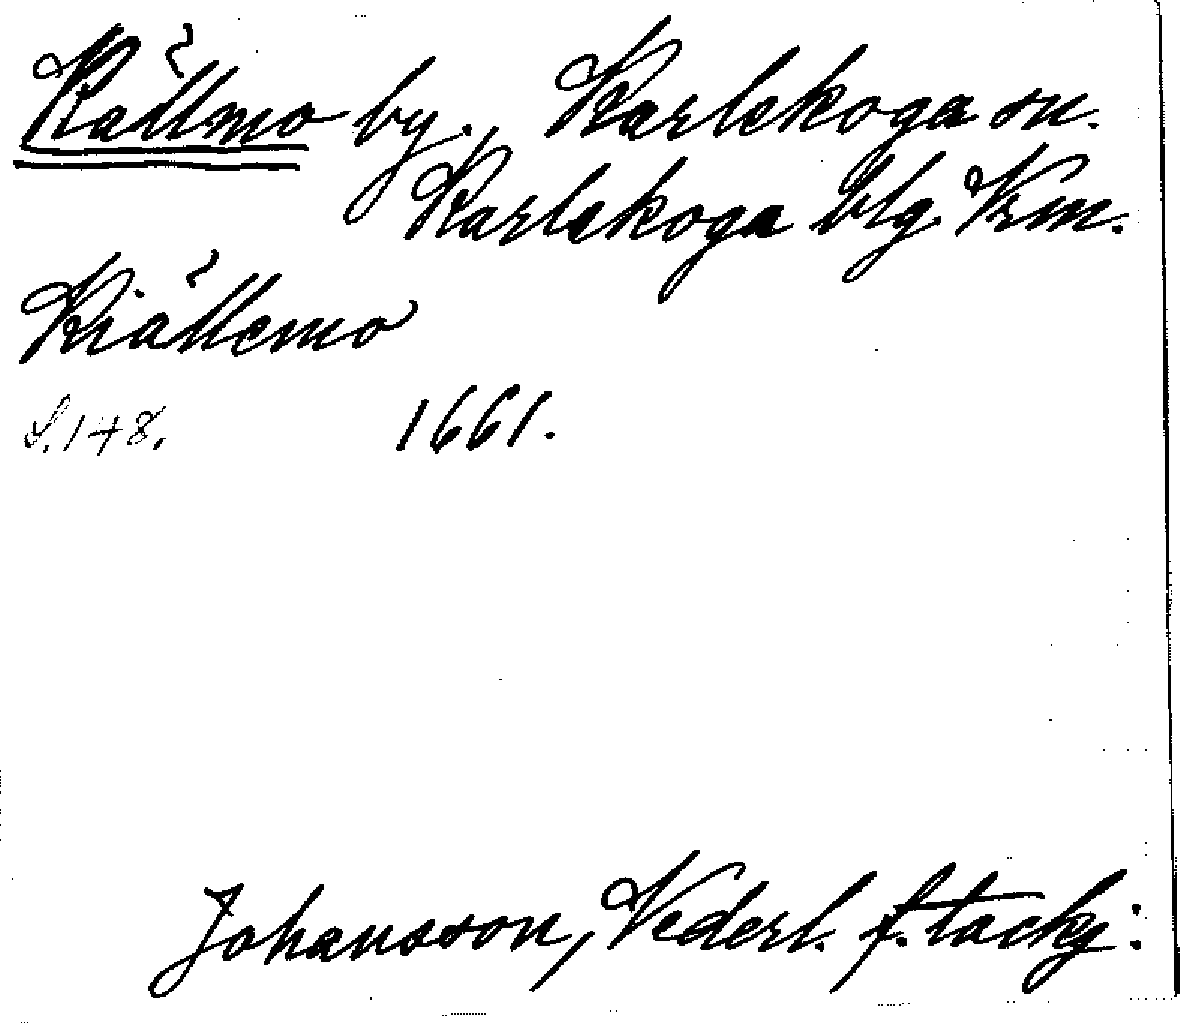 Källmo by., Karlskoga sn.
Karlskoga blg. Vrm.
Kiällemo
S. 148. 1661.
Johansson, Vederl. f. tackj: